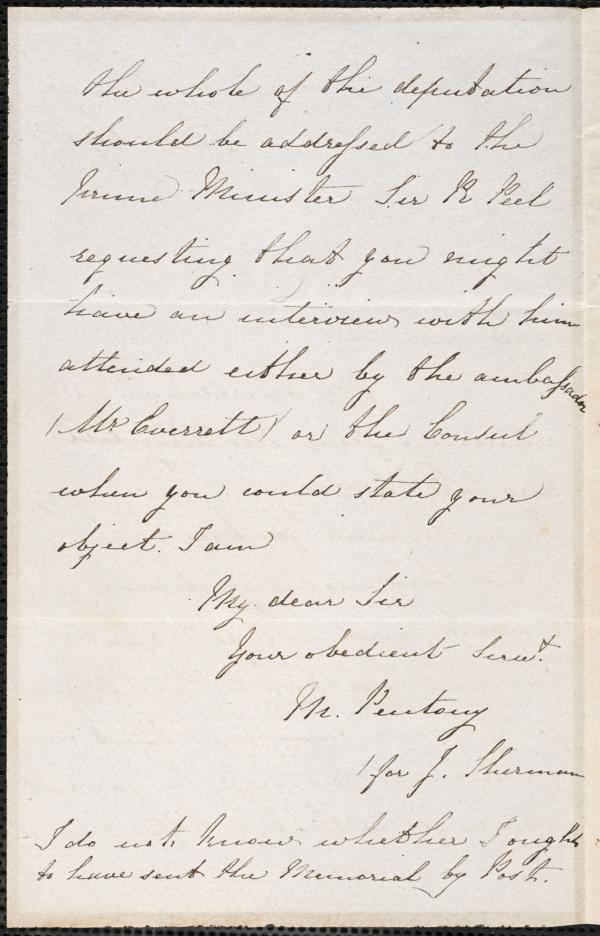 the whole of the deputation
should be addressed to the
Prime Minister Sir R Peel
requesting that you might
have an interview with him
attended either by the ambassador
(Mr Everrett) or the Consul
when you could state your
object. I am
My dear Sir
Your obedient Servt.
M. Pentony
(for J. Sherman
I do not know whether I ought
to have sent the Memorial by Post.